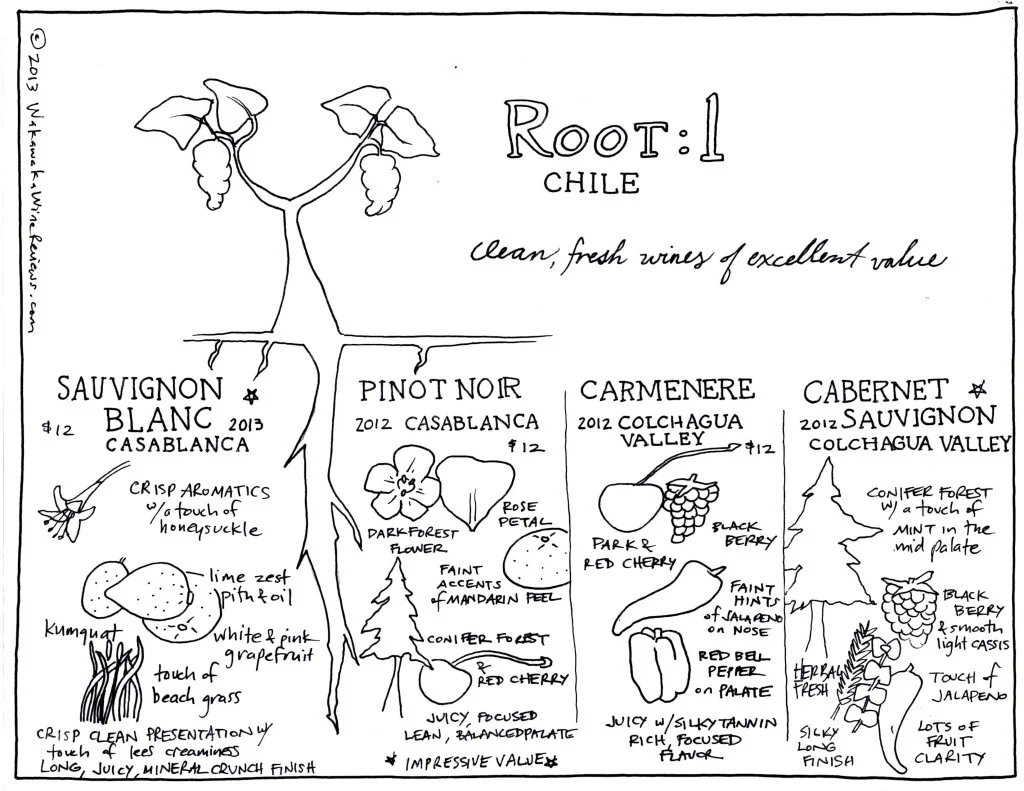 © 2013 WakawakaWineReviews.com
ROOT:1
CHILE
clean, fresh wines of excellent value
SAUVIGNON
BLANC 2013
$12
CASABLANCA
CRISP AROMATICS
w/a touch of
honeysuckle
lime zest
pith & oil
kumquat
white & pink
grapefruit
touch of
beach grass
CRISP CLEAN PRESENTATION w/
touch of lees creaminess
LONG, JUICY, MINERAL CRUNCH FINISH
PINOT NOIR
2012 CASABLANCA
$12
ROSE
PETAL
DARK FOREST
FLOWER
FAINT
ACCENTS
of MANDARIN PEEL
CONIFER FOREST
&
RED CHERRY
JUICY, FOCUSED
LEAN, BALANCED PALATE
* IMPRESSIVE VALUE *
CARMENERE
2012 COLCHAGUA
VALLEY
$12
BLACK
BERRY
DARK &
RED CHERRY
FAINT
HINTS
of JALAPENO
on NOSE
RED BELL
PEPPER
on PALATE
JUICY w/ SILKY TANNIN
RICH, FOCUSED
FLAVOR
CABERNET
2012 SAUVIGNON
COLCHAGUA VALLEY
CONIFER FOREST
w/ a touch of
MINT in the
mid palate
BLACK
BERRY
& smooth
light CASSIS
HERBAL
FRESH
TOUCH of
JALAPENO
SILKY
LONG
FINISH
LOTS OF
FRUIT
CLARITY